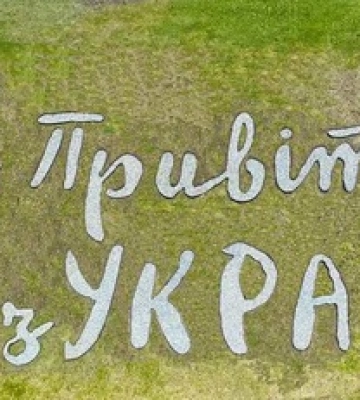 Привіт
з УКРА